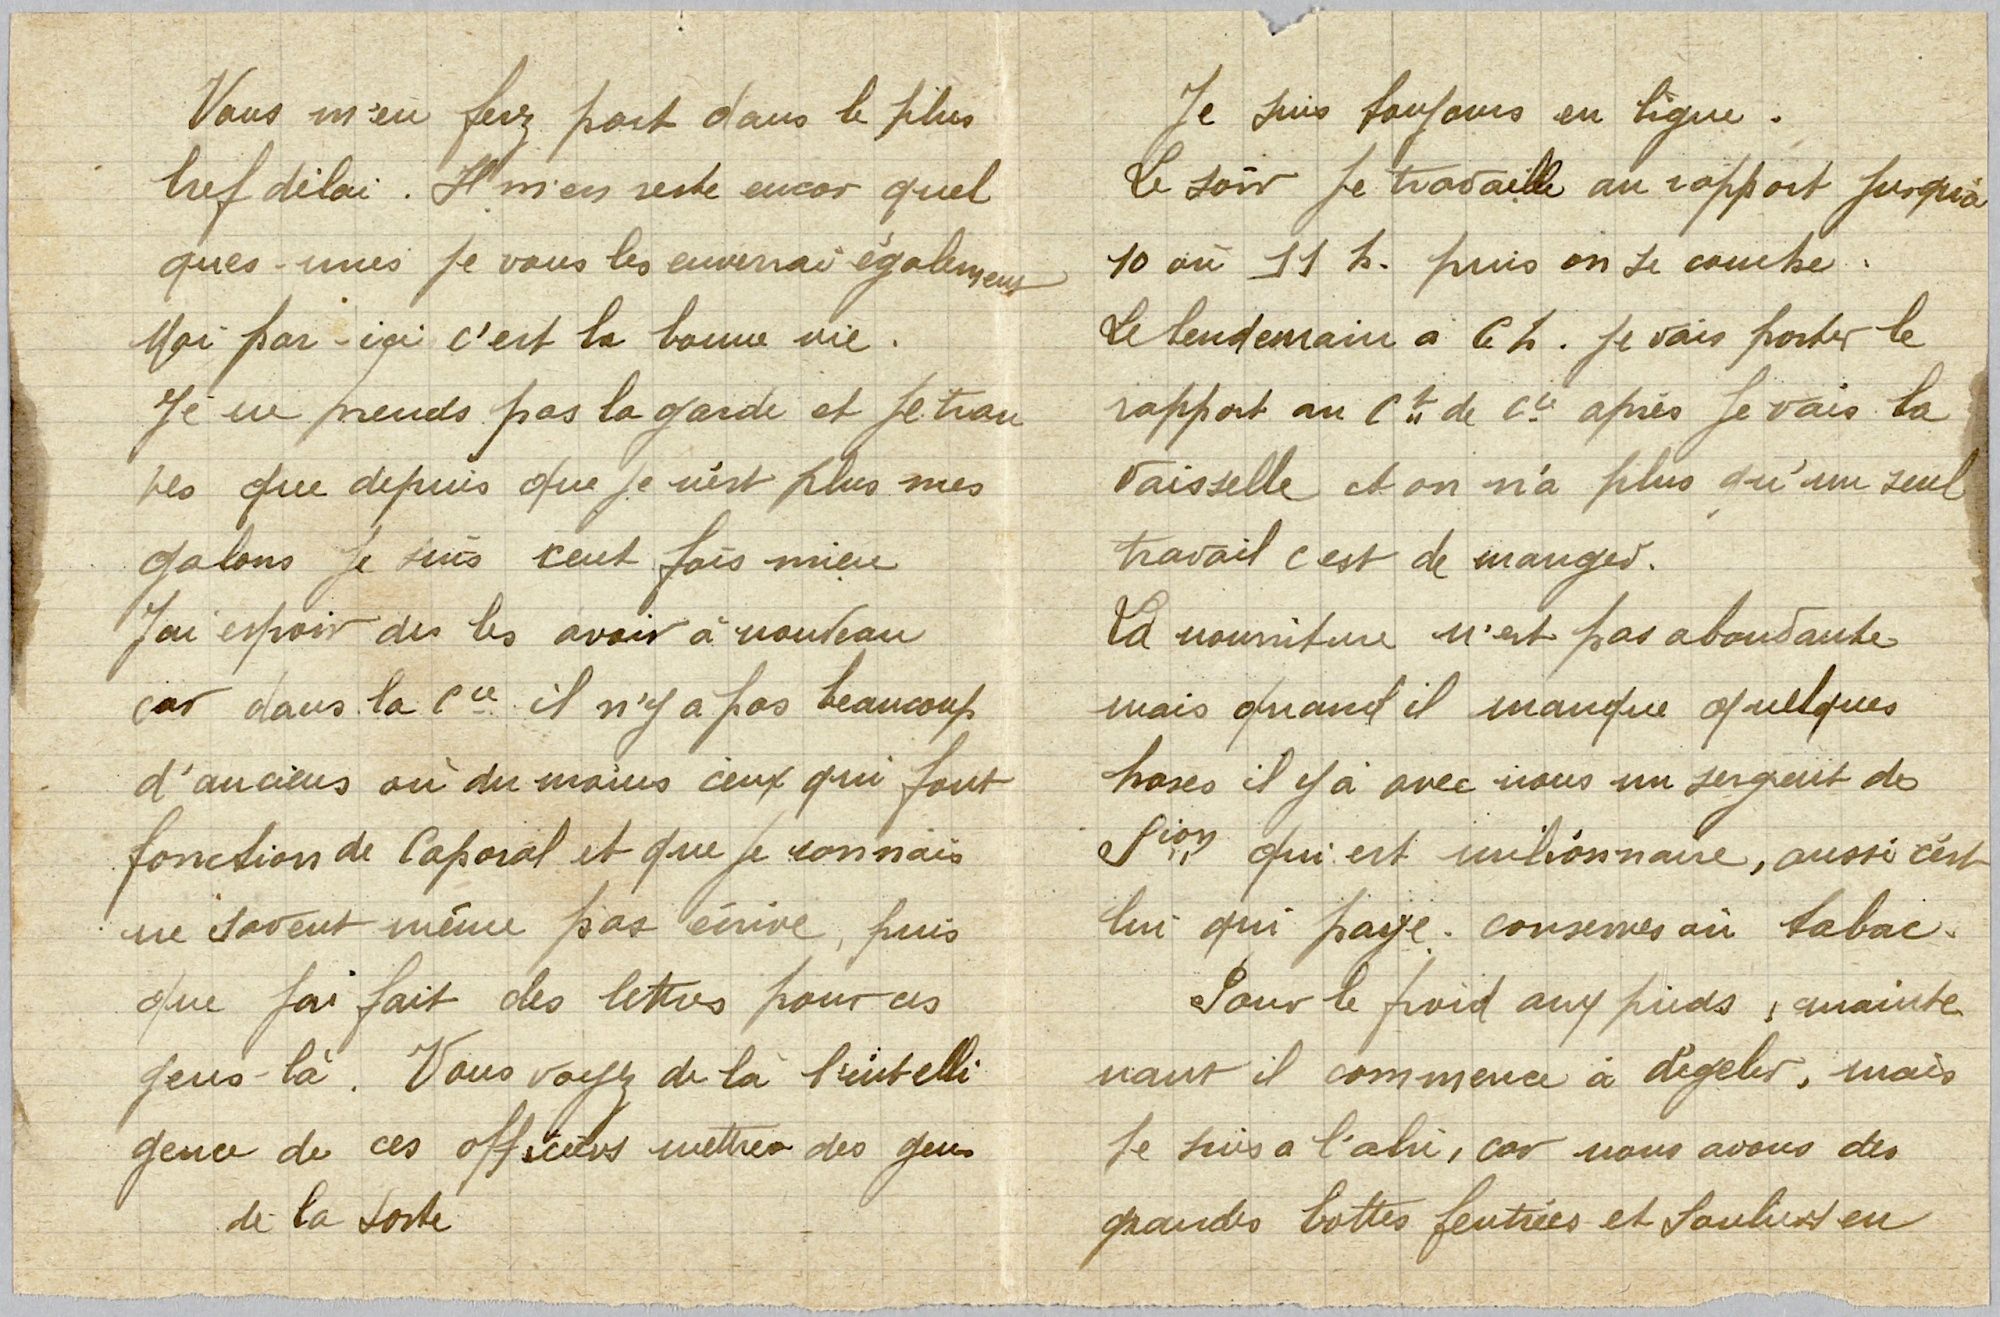 Vous m'en ferz part dans le plus
bref délai. Il m'en reste encor quel
ques-unes je vous les enverrai également
par-ici c'est la bonne vie.
Je ne prends pas la garde et je trou
ves que depuis que je n'est plus mes
galons je suis cent fois mieu
J'ai espoir des les avoir à nouveau
car dans la Cie il n'y a pas beaucoup
d'anciens où du moins ceux qui font
fonction de Caporal et que je connais
ne savent même pas écrire, puis
que j'ai fait des lettres pour ces
gens-là. Vous voyez de là l'intelli
gence de ces officiers mettres des gens
de la sorte
Je suis toujours en ligne.
Le soir je travaille au rapport jusqu'à
10 où 11 h. puis on se couche.
Le lendemain a 6 h. je vais porter le
rapport au Ct de Cie après je vais la
vaisselle et on n'a plus qu'un seul
travail c'est de manger.
La nourriture n'est pas abondante
mais quand il manque quelques
hoses il y à avec nous un sergent de
Sion qui est milionnaire, aussi c'est
lui qui paye. conserves où tabac.
Pour le froid aux pieds, mainte
nant il commence à dégeler, mais
je suis a l'abri, car nous avons des
grandes bottes feutrées et souliers en